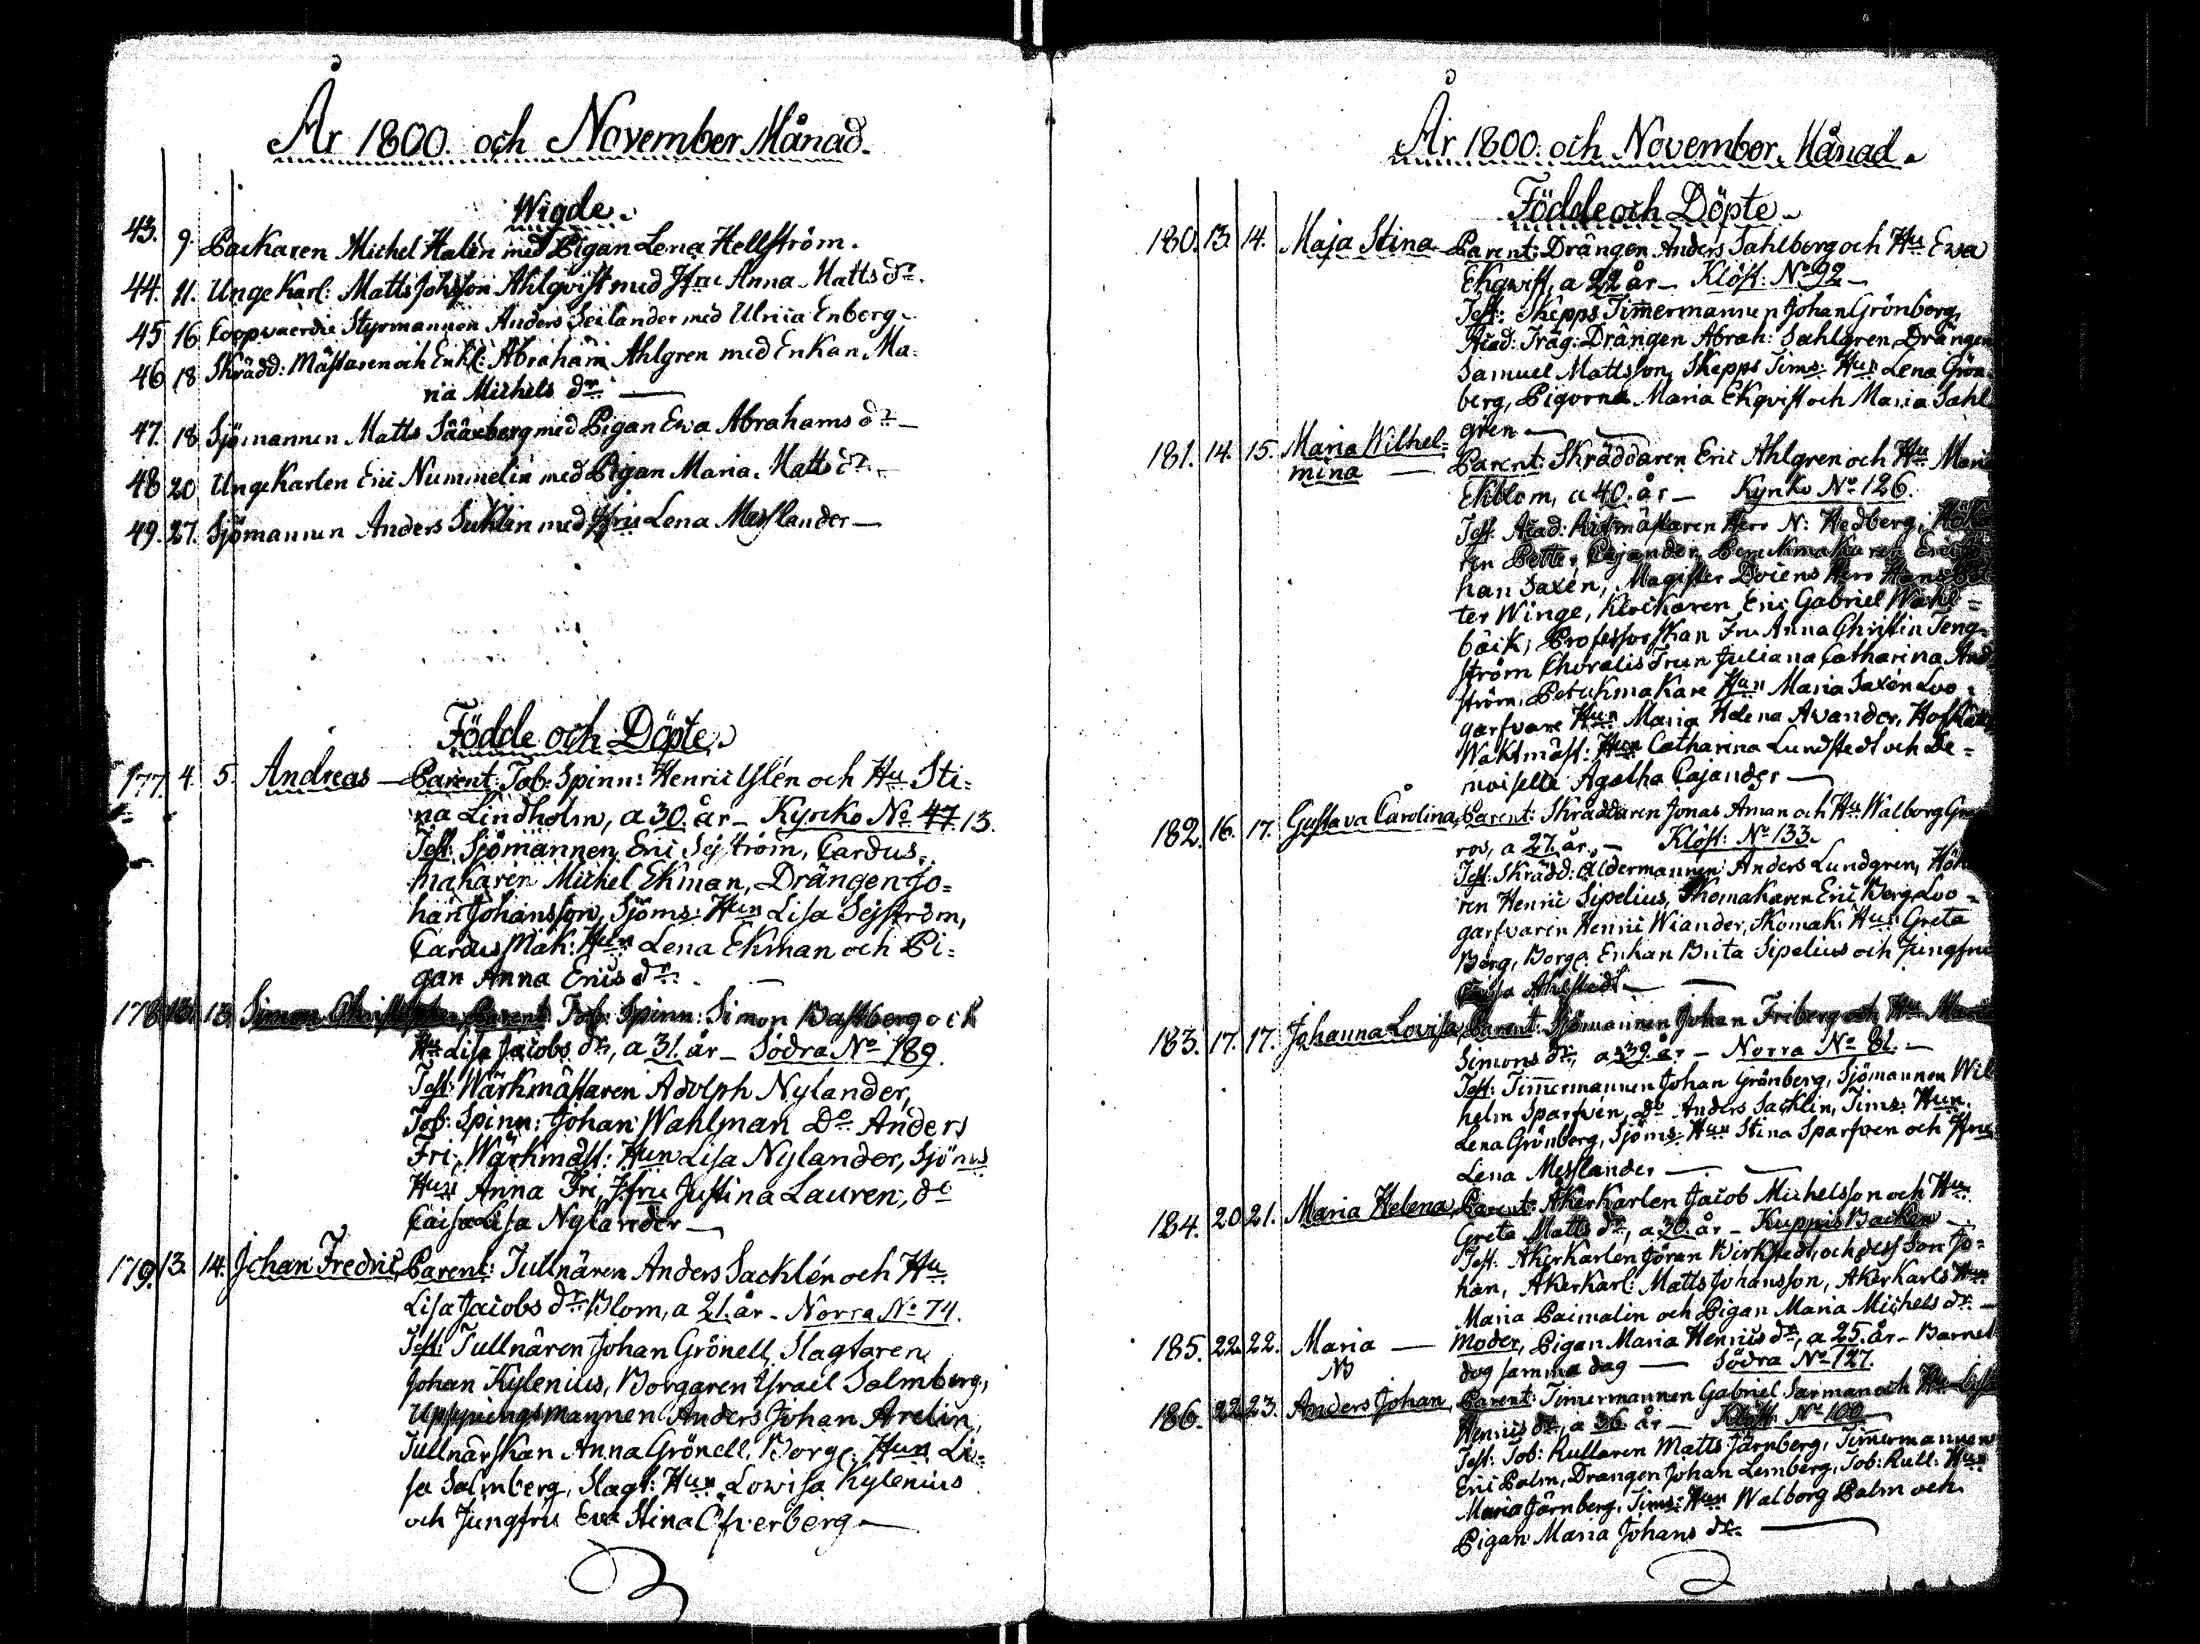 År 1800. och November Månad.
Wigde.
43. 9. Backaren Michel Halén med Pigan Lena Hellström.
44. 11. Unge Karl: Matts Johsson Ahlqvist med Jfru Anna Matts dr.
45 16 Coopvaerdie Styrmannen Anders Seilander med Ulrica Enberg.
46 18 Skrädd: Mästaren och Enkl: Abraham Ahlgren med Enkan Ma-
ria Michels dr.
47. 18 Sjömannen Matts Säärberg med Pigan Ewa Abrahams dr.
48 20 Unge Karlen Eric Nummelin med Pigan Maria Matts dr.
49. 27. Sjömannen Anders Suklin med Jfru Lena Messlander
Födde och Döpte.
177. 4. 5. Andreas Parent: Tob. Spinn: Henric Yslén och Hu Sti-
na Lindholm, a 30. år - Kyrcko No 47 13.
Test: Sjömannen Eric Sejström, Cardus-
makaren Michel Ekman, Drängen Jo-
han Johansson, Sjöms: Hun Lisa Sejström,
Cardus Mak: Hun Lena Ekman och Pi-
gan Anna Erics dr.
178. 13. 13. Simon Parent: Tob: Spinn: Simon Bastberg och
Hu Lisa Jacobs dr, a 31. år - Södra No 189.
Test: Wärkmästaren Adolph Nylander,
Tob: Spinn: Johan Wahlman Do Anders
Fri, Wärkmäst: Hun Lisa Nylander, Sjöms
Hun Anna Fri, Jfru Justina Lauren, do
Caisa Lisa Nylander
179. 13. 14. Johan Fredric, Parent: Tullnären Anders Sacklén och Hu
Lisa Jacobs dr Blom, a 21. år - Norra No 74.
Test: Tullnären Johan Grönell, Slagtaren
Johan Kylenius, Borgaren Israel Salmberg,
Upsyningsmannen Anders Johan Arelin,
Tullnärskan Anna Grönell, Borg: Hun Li-
sa Salmberg, Slagt: Hun Lowisa Kylenius
och Jungfru Eva Stina Ofverberg
År 1800. och November Månad.
Födde och Döpte
180. 13. 14. Maja Stina Parent: Drängen Anders Sahlberg och Hu Ewa
Ekqwist, a 22 år - Klöst: No 92 -
Test: Skepps Timmermannen Johan Grönberg,
Acad: Träg: Drängen Abrah: Sahlgren, Drängen
Samuel Mattsson, Skepps Tims: Hun Lena Grön-
berg, Pigorna Maria Ekqvist och Maria Sahl
gren
181. 14. 15. Maria Wilhel- Parent: Skräddaren Eric Ahlgren och Hu Maria
mina Ekblom, a 40. år - Kyrko No 126.
Test: Acad: Ritmästaren Herr N: Hedberg,
ren Petter Cajander, Perukmakaren Eric
han Saxén, Magister Dociens Herr
ter Winge, Klockaren Eric Gabriel Wahl-
bäck; Professorskan Fru Anna Christin Teng-
ström Choralis Frun Juliana Catharina
ström, Perukmakare Hun Maria Saxén Loo-
garfvare Hun Maria Helena Avander,
Waktmäst: Hun Catharina Lundstedt och De-
moiselle Agatha Cajander
182. 16. 17. Gustava Carolina, Parent: Skräddaren Jonas Aman och Hu Walborg
ros, a 27. år. - Klöst: No 133.
Test: Skrädd: Åldermannen Anders Lundgren,
ren Henric Sipelius, Skomakaren Eric Borg, Loo-
garfvaren Henric Wiander, Skomak: Hun Greta
Borg, Borg: Enkan Brita Sipelius och Jungfru
Caisa Ahlstedt
183. 17. 17. Johanna Lovisa, Parent: Sjömannen Johan Friberg och Hu Maria
Simons dr, a 39. år - Norra No 81. -
Test: Timmermannen Johan Grönberg, Sjömannen Wil
helm Sparfvén, Do Anders Sacklin, Tims: Hun
Lena Grönberg, Sjöms: Hun Stina Sparfven och Jfru
Lena Messlander
184. 20 21. Maria Helena, Parent: Åkerkarlen Jacob Michelsson och Hu
Greta Matts dr, a 30. år - Kuppis Backen
Test: Åkerkarlen Jöran Birkstedt, och dess Son Jo-
han, Åkerkarl: Matts Johansson, Åkerkarls Hun
Maria Paimalin och Pigan Maria Michels dr.
185. 22. 22. Maria Moder, Pigan Maria Henrics dr, a 25. år - Barnet
NB dog samma dag Södra No 127.
186. 22 23. Anders Johan, Parent: Timmermannen Gabriel Sarman och Hu
Henrics dr, a 36. år - Klöst: No 100
Test: Tob: Rullaren Matts Järnberg, Timmermannen
Eric Palm, Drängen Johan Lemberg, Tob: Rull: Hun
Maria Järnberg, Tims: Hun Walborg Palm och
Pigan Maria Johans dr.